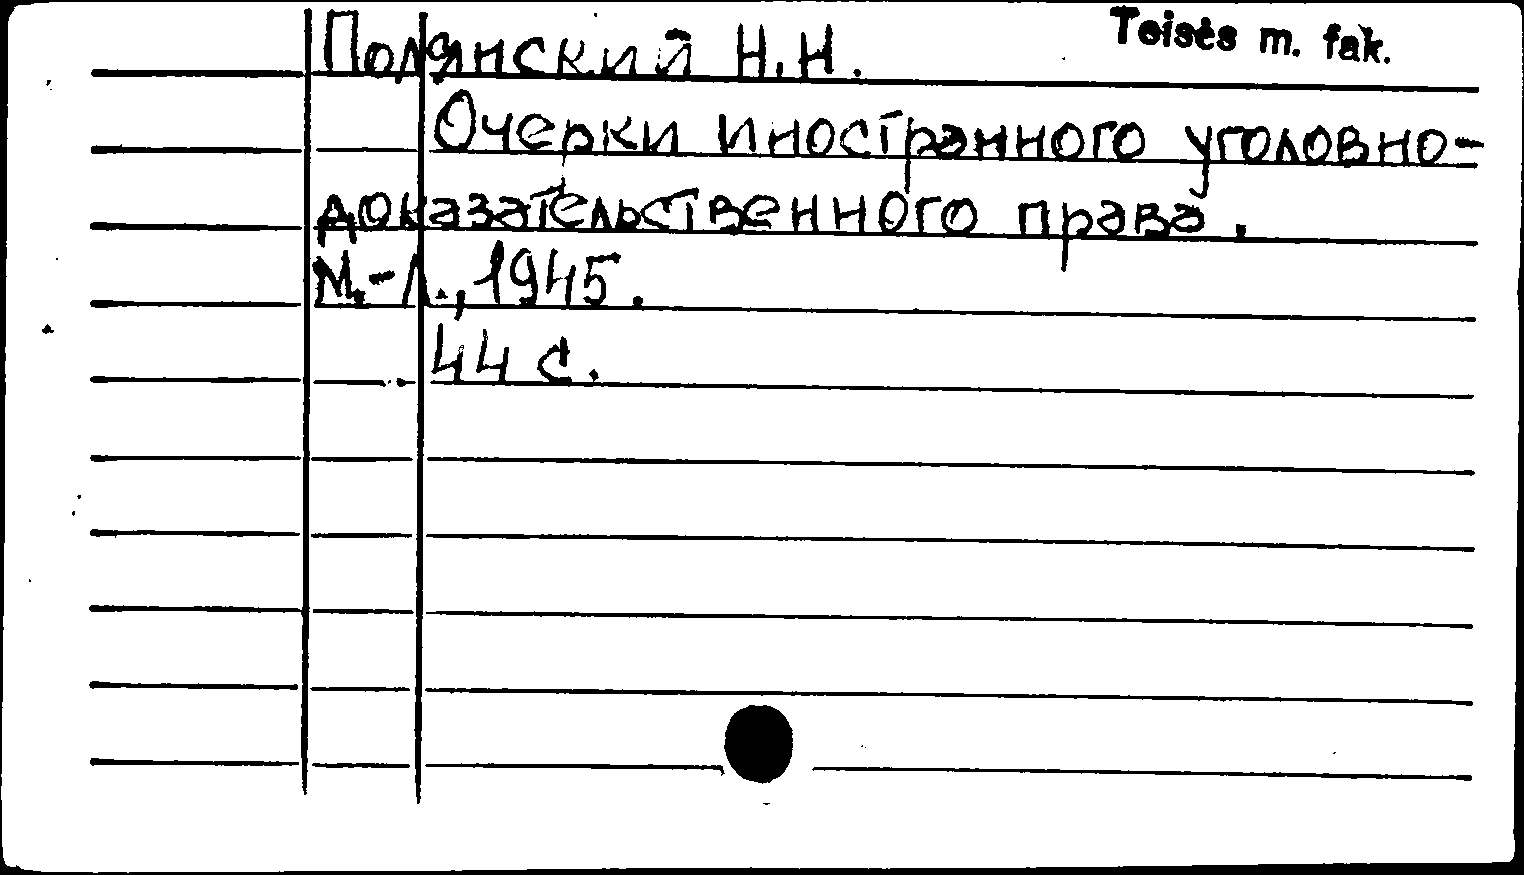 Teisės m. fak.
Полянский Н.Н.
Очерки иностранного уголовно-
доказательственного права.
М.-Л., 1945.
44 с.